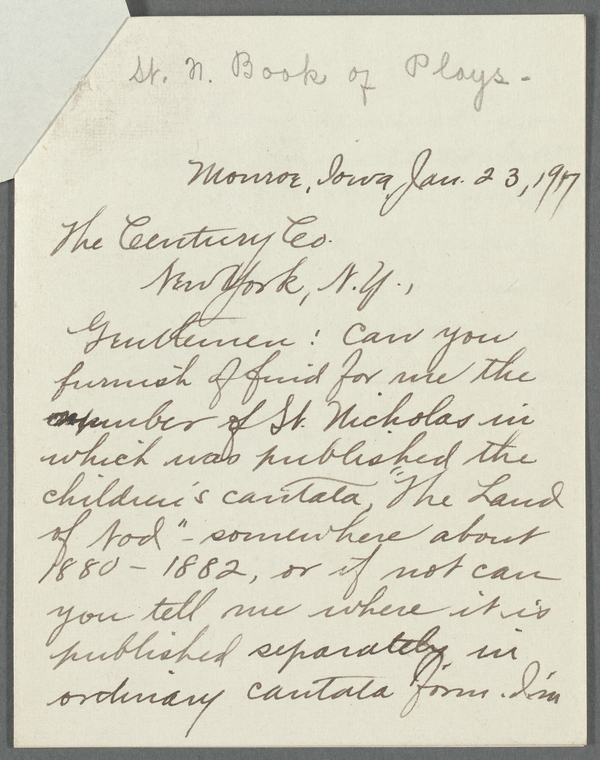 St. N. Book of Plays -
Monroe, Iowa, Jan. 23, 1917
The Century Co.
New York, N.Y.,
Gentlemen: Can you
furnish of find for me the
number of St. Nicholas in
which was published the
children's cantata, "The Land
of Nod" - somewhere about
1880 - 1882, or if not can
you tell me where it is
published separately in
ordinary cantata form. I'm